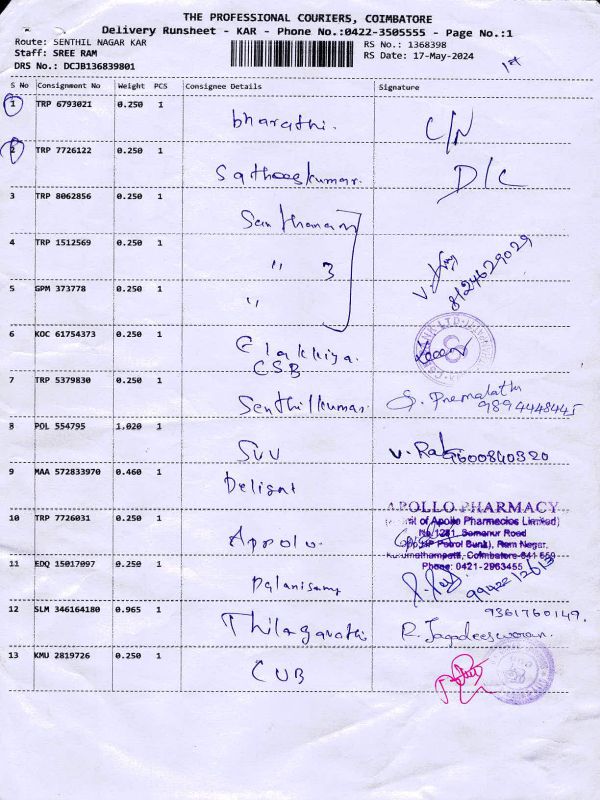 THE PROFESSIONAL COURIERS, COIMBATORE
Delivery Runsheet - KAR - Phone No.:0422-3505555 - Page No.:1
Route: SENTHIL NAGAR KAR
RS No.: 1368398
Staff: SREE RAM
RS Date: 17-May-2024
DRS No.: DCJB136839801
1st
S No Consignment No Weight PCS Consignee Details Signature
1 TRP 6793021 0.250 1 bharathi. C/N
2 TRP 7726122 0.250 1 Satheeskumar. D/C
3 TRP 8062856 0.250 1 Santhanam
4 TRP 1512569 0.250 1 " 3
8124629029
5 GPM 373778 0.250 1 "
6 KOC 61754373 0.250 1 Elakkiya.
CSB
7 TRP 5379830 0.250 1 Senthilkumar. S. Premalatha
9894448445
8 POL 554795 1.020 1 SVV 9500840320
9 MAA 572833970 0.460 1 Delisat
APOLLO PHARMACY
of Apollo Pharmacies Limited)
10 TRP 7726031 0.250 1 Appolo.
No/1281, Somanur Road
Petrol Bunk), Ram Nagar,
Coimbatore-641 659
Phone: 0421-2963455
11 EDQ 15017097 0.250 1 Palanisamy
12 SLM 346164180 0.965 1 Thilagavathi R. Jagadeeswaran.
9361760149.
13 KMU 2819726 0.250 1 CUB